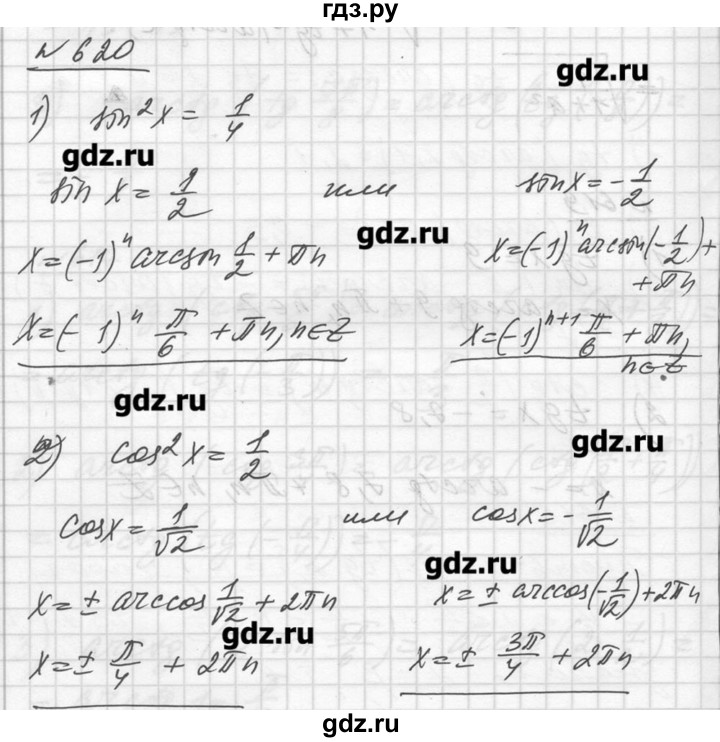 гдз.ру
№ 620
gdz.ru
1) sin²x = 1/4
gdz.ru
sin x = 1/2 или sin x = - 1/2
gdz.ru
x = (-1)ⁿ arcsin 1/2 + πn
x = (-1)ⁿ arcsin(-1/2) +
+ πn
x = (-1)ⁿ π/6 + πn, n∈Z
x = (-1)ⁿ⁺¹ π/6 + πn,
n∈Z
gdz.ru
gdz.ru
2) cos²x = 1/2
cos x = 1/√2 или cos x = - 1/√2
gdz.ru
x = ± arccos 1/√2 + 2πn
x = ± arccos(-1/√2) + 2πn
gdz.ru
x = ± π/4 + 2πn
x = ± 3π/4 + 2πn
gdz.ru